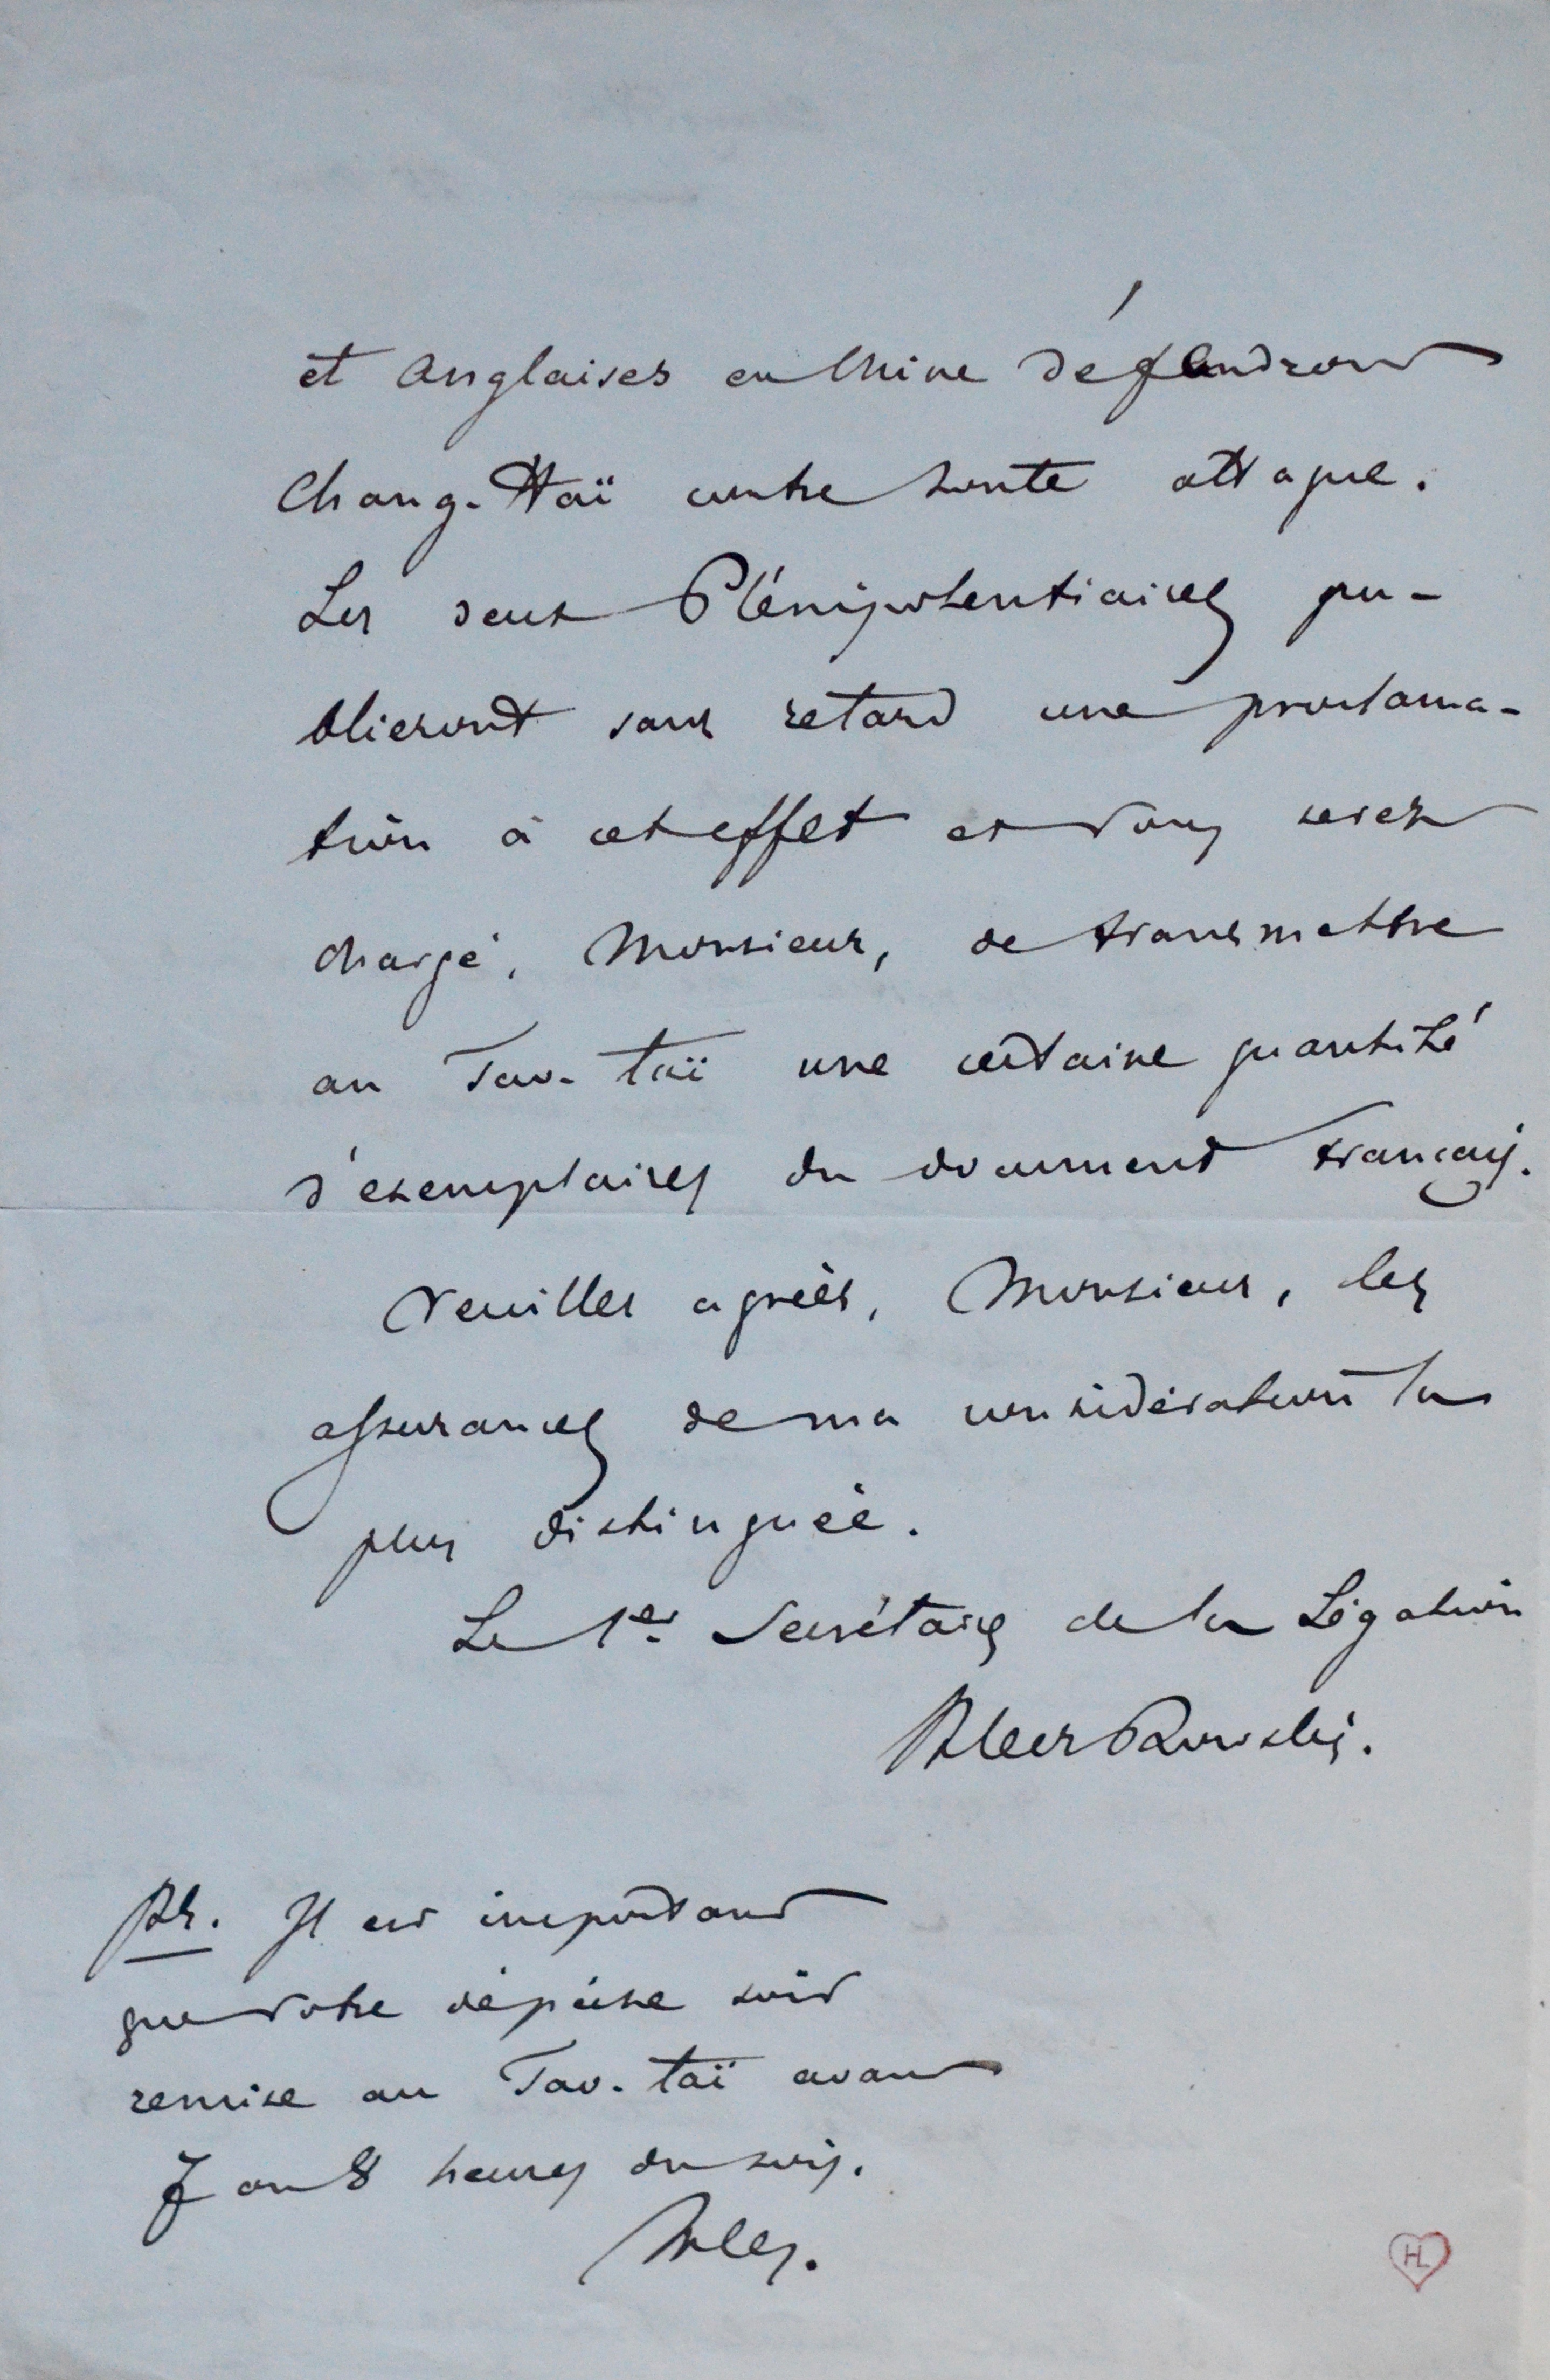 et anglaises en Chine défendront
Chang-Haï contre toute attaque.
Les deux Plénipotentiaires pu-
blieront sans retard une proclama-
tion à cet effet et vous serez
chargé, Monsieur, de transmettre
au Tao-taï une certaine quantité
d'exemplaires du document français.
Veuillez agréer, Monsieur, les
assurances de ma considération la
plus distinguée.
Le 1er Secrétaire de la Légation
Kleczkowski.
Ps. Il est important
que votre dépêche soit
remise au Tao-taï avant
7 ou 8 heures du soir.
HL